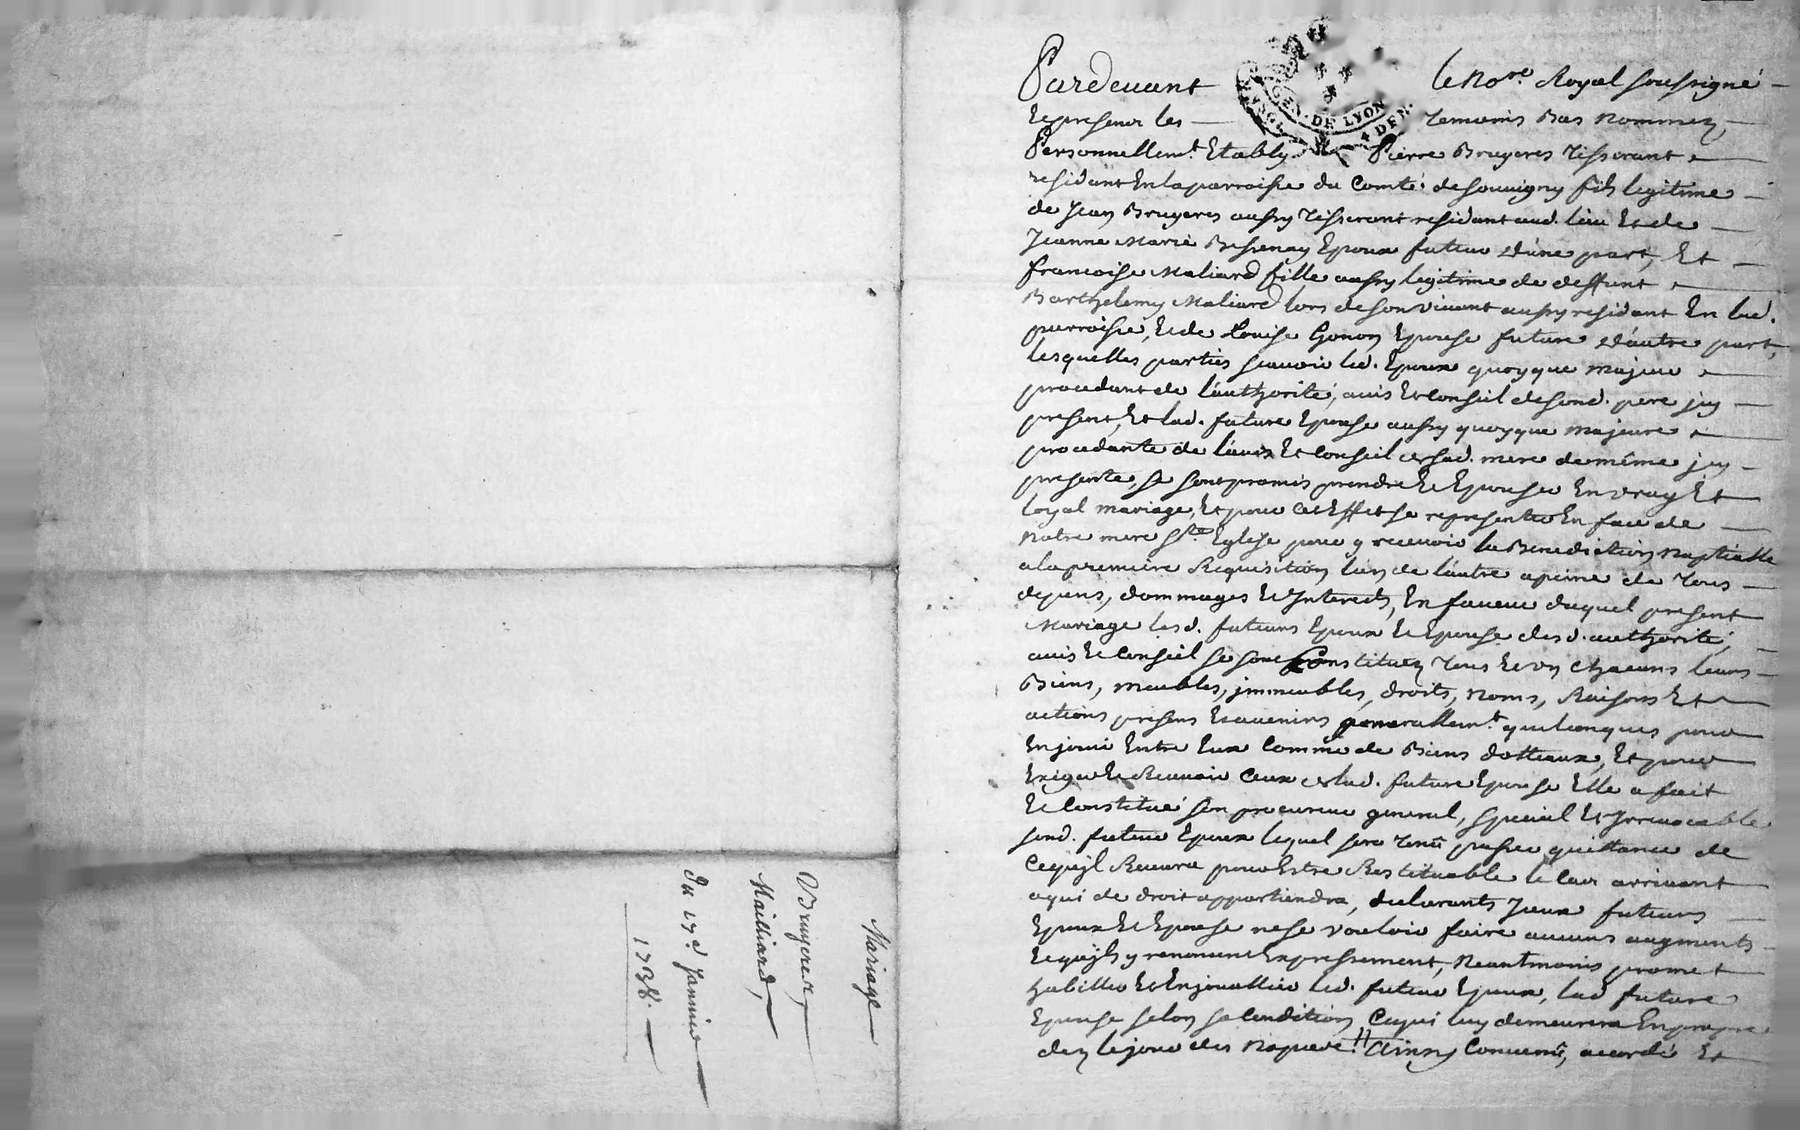 Mariage
Bruyeres,
Mailliard,
Du 17.e Janvier
1738.
GEN. DE LYON
4 DEN.
Pardevant le No.re Royal soussigné
Et presents les temoins Bas nommez,
Personnellem.t Etably Pierre Bruyeres Tisserant
residant En la parroisse du Comté de Souvigny fils legitime
de Jean Bruyeres aussy Tisserant residant aud. lieu Et de
Jeanne Marie Bessenay Epoux futur d'une part, Et
francoise Maliard fille aussy legitime de deffunt
Barthelemy Maliard lors de son vivant aussy residant En lad.
parroisse, Et de Louise Gonon Epouse future d'autre part,
lesquelles parties scavoir led. Epoux quoyque majeur
procedant de l'authorité, avis Et Conseil de sond. pere jcy
present, Et lad. future Epouse aussy quoyque majeure
procedante de l'avis Et Conseil de sad. mere de même jcy
presente, se sont promis prendre Et Epouser En vray Et
loyal mariage, Et pour cet Effet se representer En face de
Notre mere S.te Eglise pour y recevoir la Benediction nuptialle
a la premiere Requisition l'un de l'autre a peine de tous
depens, dommages Et Interets, En faveur duquel present
Mariage lesd. futurs Epoux Et Epouse desd. authorité,
avis Et Conseil se sont Constituez tous Et un chacuns leurs
Biens, meubles, jmmeubles, droits, noms, Raisons Et
actions presens Et avenirs generallem.t quelconques pour
En jouir Entre Eux Comme de Biens dotteaux, Et pour
Exiger Et Recevoir Ceux de lad. future Epouse Elle a fait
Et Constitué son procureur general, special Et Irrevocable
sond. futur Epoux lequel sera tenû passer quittance de
Ce qu'jl Recevra pour Estre Restituable le Cas arrivant
a qui de droit appartiendra, declarants Jceux futurs
Epoux Et Epouse ne se vouloir faire aucuns augments
Et qu'jls y renoncent Expressement, Neantmoins promet
habiller Et Enjoualler led. futur Epoux, lad. future
Epouse selon sa Condition Ce qui luy demeurera En propre
dez le jour des Nopces.// Ainsy Convenû, accordé Et